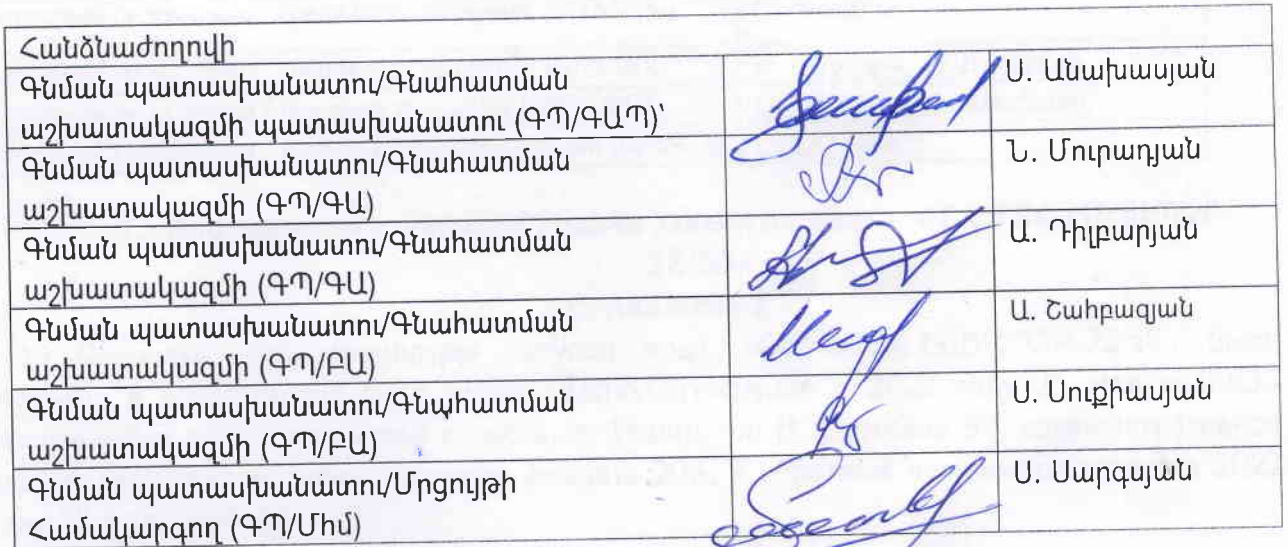 Հանձնաժողովի
Գնման պատասխանատու/Գնահատման
աշխատակազմի պատասխանատու (ԳՊ/ԳԱՊ)՝
Ս. Անախասյան
Գնման պատասխանատու/Գնահատման
աշխատակազմի (ԳՊ/ԳԱ)
Ն. Մուրադյան
Գնման պատասխանատու/Գնահատման
աշխատակազմի (ԳՊ/ԳԱ)
Ա. Դիլբարյան
Գնման պատասխանատու/Գնահատման
աշխատակազմի (ԳՊ/ԲԱ)
Ա. Շահբազյան
Գնման պատասխանատու/Գնահատման
աշխատակազմի (ԳՊ/ԲԱ)
Ս. Սուքիասյան
Գնման պատասխանատու/Մրցույթի
Համակարգող (ԳՊ/Մհմ)
Ս. Սարգսյան